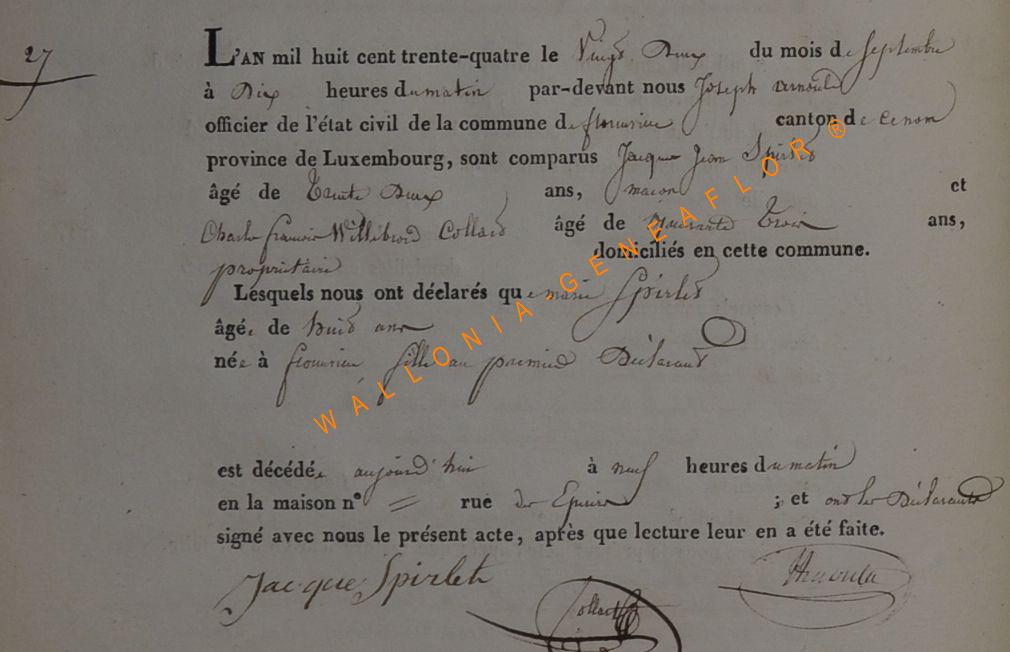 27
L'AN mil huit cent trente-quatre le Vingt Deux du mois de Septembre
à Dix heures du matin par-devant nous Joseph Arnould
officier de l'état civil de la commune de canton de
province de Luxembourg, sont comparus Jacque Jean Spirlet
âgé de Trente Deux ans, maçon et
Charle françois Willibrord Collard âgé de quarante Trois ans,
propriétaire domiciliés en cette commune.
Lesquels nous ont déclarés que marie Spirlet
âgée de huit ans
née à fille au premier Déclarant
est décédée aujourd'hui à neuf heures du matin
en la maison n° = rue ; et ont les Déclarants
signé avec nous le présent acte, après que lecture leur en a été faite.
Jacque Spirlet Collard Arnould
WALLONIA-GENEAFLOR®